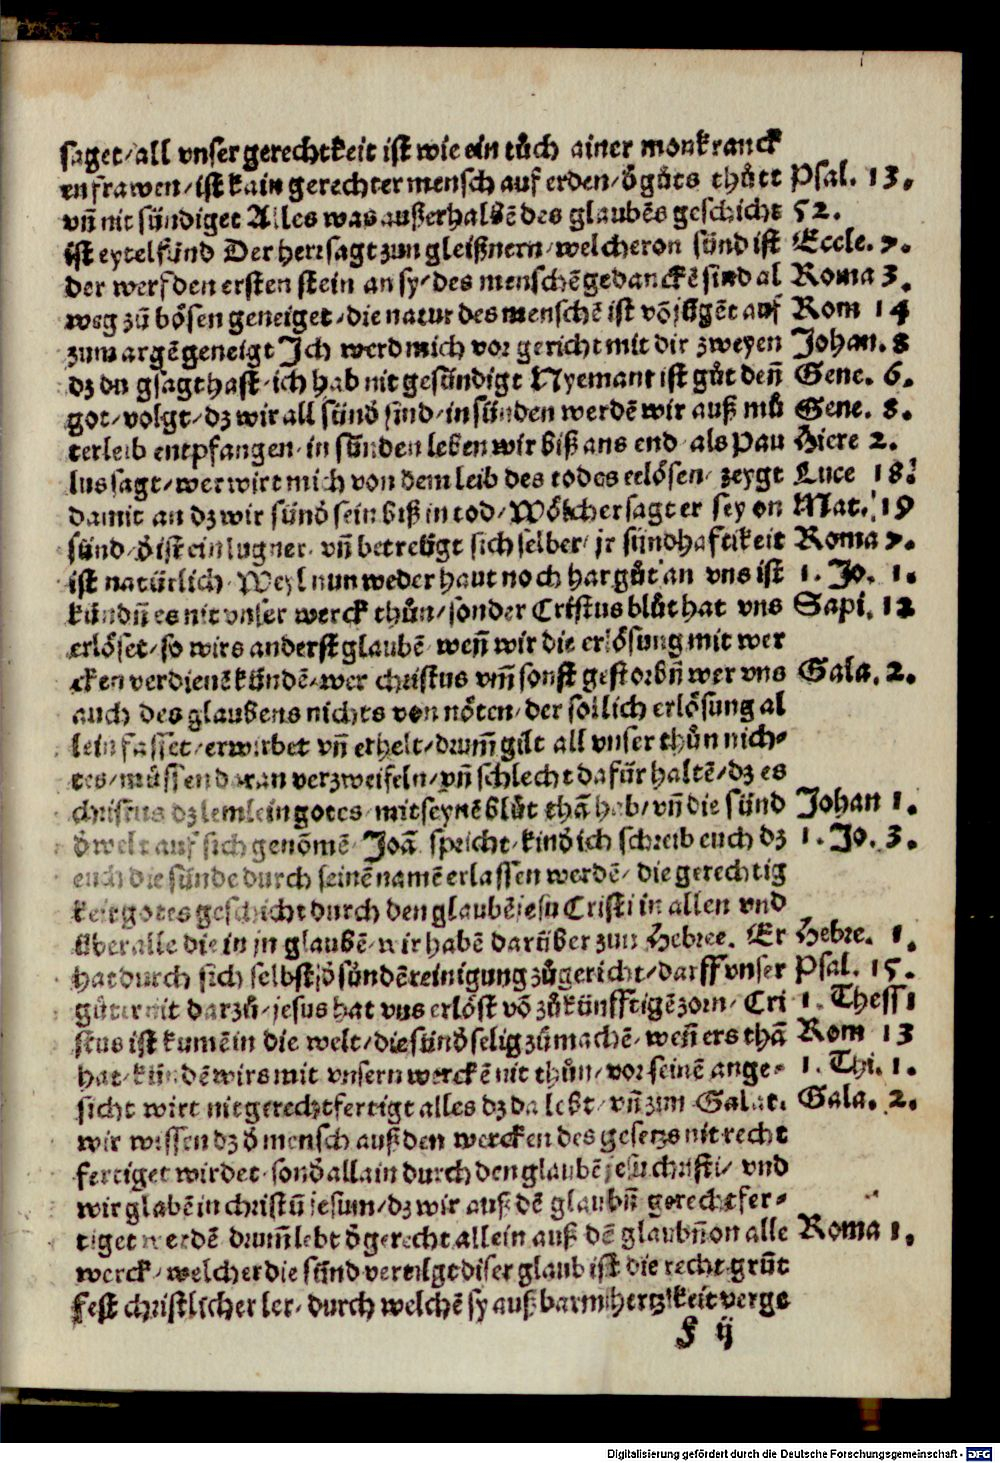 saget/all vnser gerechtkeit ist wie ein tůch ainer monkranck
en frawen/ist kain gerechter mensch auf erden/ð gůts thůtt Psal. 13.
vñ nit sündiget Alles was außerhalbē des glaubēs geschicht 52.
ist eytel sünd Der herr sagt zun gleißnern/welcher on sünd ist Eccle. 7.
der werf den ersten stein an sy/des menschē gedanckē sind al Roma 3.
weg zů bösen geneiget/die natur des menschē ist vō jügēt auf Rom 14
zum argē geneigt Ich werd mich vor gericht mit dir zweyen Johan. 8
dz du gsagt hast/ich hab nit gesündigt Nyemant ist gůt deñ Gene. 6.
got/volgt/dz wir all sünð sind/in sünden werdē wir auß mů Gene. 8.
terleib entpfangen/in sünden leben wir biß ans end/als Pau Hiere 2.
lus sagt/wer wirt mich von dem leib des todes erlösen/zeygt Luce 18.
damit an dz wir sünð sein biß in tod/Wölcher sagt er sey on Mat. 19
sünd/ð ist ein lugner/vñ betreügt sich selber/jr sündhaftikeit Roma 7.
ist natürlich/Weyl nun weder haut noch har gůt an vns ist 1. Jo. 1.
kündñ es nit vnser werck thůn/sonder Cristus blůt hat vns Sapi. 12
erlöset/so wirs anderst glaubē/weñ wir die erlösung mit wer
cken verdienē kündē/wer christus vm̄ sonst gestorbñ wer vns Gala. 2.
auch des glaubens nichts von nöten/der söllich erlösung al
lein fasset/erwirbet vñ erhelt/drum̄ gilt all vnser thůn nich-
tes/müssen daran verzweifeln/vñ schlecht dafür haltē/dz es
christus dz lemlein gotes/mit seynē blůt thā hab/vñ die sünd Johan 1.
ð welt auf sich genōmē/Joā. spricht/kinð ich schreib euch dz 1. Jo. 3.
euch die sünde durch seinē namē erlassen werdē/die gerechtig
keit gotes geschicht durch den glaubē jesu Cristi in allen vnd
über alle die in jn glaubē/wir habē darüber zun Hebree. Er Hebre. 1.
hat durch sich selbst ð sündē reinigung zůgericht/darff vnser Psal. 15.
gůter nit darzů/jesus hat vns erlöst vō zůkünfftigē zorn/Cri 1. Thess 1
stus ist kumē in die welt/die sünð selig zůmachē/weñ ers thā Rom 13
hat/kündē wirs mit vnsern werckē nit thůn/vor seinē ange- 1. Thi. 1.
sicht wirt nit gerechtfertigt alles dz da lebt/vñ zun Galat. Gala. 2.
wir wissen dz ð mensch auß den wercken des gesetzs nit recht
fertiget wirdet/sonð allain durch den glaubē jesu christi/vnd
wir glabē in christū jesum/dz wir auß dē glaubñ gerechtfer-
tiget werdē drum̄ lebt ð gerecht allein auß dē glaubñ on alle Roma 1.
werck/welcher die sünd vertilgt diser glaub ist die recht grůt
fest christlicher ler/durch welchē sy auß barmhertzikeit verge
F ij
Digitalisierung gefördert durch die Deutsche Forschungsgemeinschaft - DFG